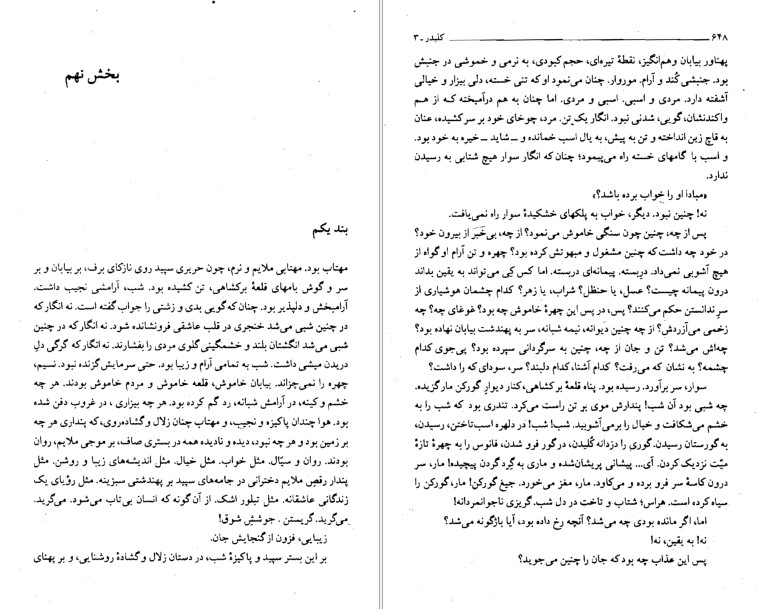 بخش نهم
بند یکم
مهتاب بود. مهتابی ملایم و نرم، چون حریری سپید روی نازکای برف، بر بیابان و بر
سر و گوش بامهای قلعهٔ برکشاهی، تن کشیده بود. شب، آرامشی نجیب داشت.
آرامبخش و دلپذیر بود. چنان که گویی بدی و زشتی را جواب گفته است. نه انگار که
در چنین شبی می‌شد خنجری در قلب عاشقی فرونشانده شود. نه انگار که در چنین
شبی می‌شد انگشتان بلند و خشمگینی گلوی مردی را بفشارند. نه انگار که گرگی دلِ
دریدن میشی داشت. شب به تمامی آرام و زیبا بود. حتی سرمایش گزنده نبود. نسیم،
چهره را نمی‌چزاند. بیابان خاموش، قلعه خاموش و مردم خاموش بودند. هر چه
خشم و کینه، در آرامش شبانه، رد گم کرده بود. هر چه بیزاری، در غروب دفن شده
بود. هوا چندان پاکیزه و نجیب، و مهتاب چنان زلال و گشاده‌روی، که پنداری هر چه
بر زمین بود و هر چه نبود، دیده و نادیده همه در بستری صاف، بر موجی ملایم، روان
بودند. روان و سیّال. مثل خواب. مثل خیال. مثل اندیشه‌های زیبا و روشن. مثل
پندار رقص ملایم دخترانی در جامه‌های سپید بر پهندشتی سبزینه. مثل رؤیای یک
زندگانی عاشقانه. مثل تبلور اشک. از آن گونه که انسان بی‌تاب می‌شود. می‌گرید.
می‌گرید. گریستن. جوشش شوق!
زیبایی، فزون از گنجایش جان.
بر این بستر سپید و پاکیزهٔ شب، در دستان زلال و گشادهٔ روشنایی، و بر پهنای
۶۴۸ کلیدر ـ ۳
پهناور بیابان وهم‌انگیز، نقطهٔ تیره‌ای، حجم کبودی، به نرمی و خموشی در جنبش
بود. جنبشی کُند و آرام. موروار. چنان می‌نمود او که تنی خسته، دلی بیزار و خیالی
آشفته دارد. مردی و اسبی. اسبی و مردی. اما چنان به هم درآمیخته که از هم
واکندنشان، گویی، شدنی نبود. انگار یک تن. مرد، چوخای خود بر سر کشیده، عنان
به قاچ زین انداخته و تن به پیش، به یال اسب خمانده و ـ شاید ـ خیره به خود بود.
و اسب با گامهای خسته راه می‌پیمود؛ چنان که انگار سوار هیچ شتابی به رسیدن
ندارد.
«مبادا او را خواب برده باشد؟»
نه! چنین نبود. دیگر، خواب به پلکهای خشکیدهٔ سوار راه نمی‌یافت.
پس از چه، چنین چون سنگی خاموش می‌نمود؟ از چه، بی‌خَبَر از بیرون خود؟
در خود چه داشت که چنین مشغول و مبهوتش کرده بود؟ چهره و تن آرام او گواه از
هیچ آشوبی نمی‌داد. دربسته. پیمانه‌ای دربسته. اما کس کِی می‌تواند به یقین بداند
درون پیمانه چیست؟ عسل، یا حنظل؟ شراب، یا زهر؟ کدام چشمان هوشیاری از
سرِ ندانستن حکم می‌کنند؟ پس، در پس این چهرهٔ خاموش چه بود؟ غوغای چه؟ چه
زخمی می‌آزردش؟ از چه چنین دیوانه، نیمه شبانه، سر به پهندشت بیابان نهاده بود؟
چه‌اش می‌شد؟ تن و جان از چه، چنین به سرگردانی سپرده بود؟ پی‌جوی کدام
چشمه؟ به نشان که می‌رفت؟ کدام آشنا، کدام دلبند؟ سر، سودای که را داشت؟
سوار، سر برآورد. رسیده بود. پناه قلعهٔ برکشاهی، کنار دیوار. گورکن مارگزیده.
چه شبی بود آن شب! پندارش موی بر تن راست می‌کرد. تندری بود که شب را به
خشم می‌شکافت و خیال را برمی‌آشوبید. شب! شب! در دلهره اسب‌تاختن، رسیدن،
به گورستان رسیدن. گوری را دزدانه کُلیدن، در گور فرو شدن، فانوس را به چهرهٔ تازهٔ
میّت نزدیک کردن. آی... پیشانی پریشان‌شده و ماری به گِردِ گردن پیچیده! مار، سر
درون کاسهٔ سر فرو برده و می‌کاود. مار، مغز می‌خورد. جیغ گورکن! مار، گورکن را
سیاه کرده است. هراس؛ شتاب و تاخت در دل شب. گریزی ناجوانمردانه!
اما، اگر مانده بودی چه می‌شد؟ آنچه رخ داده بود، آیا باژگونه می‌شد؟
نه! به یقین، نه!
پس این عذاب چه بود که جان را چنین می‌جوید؟